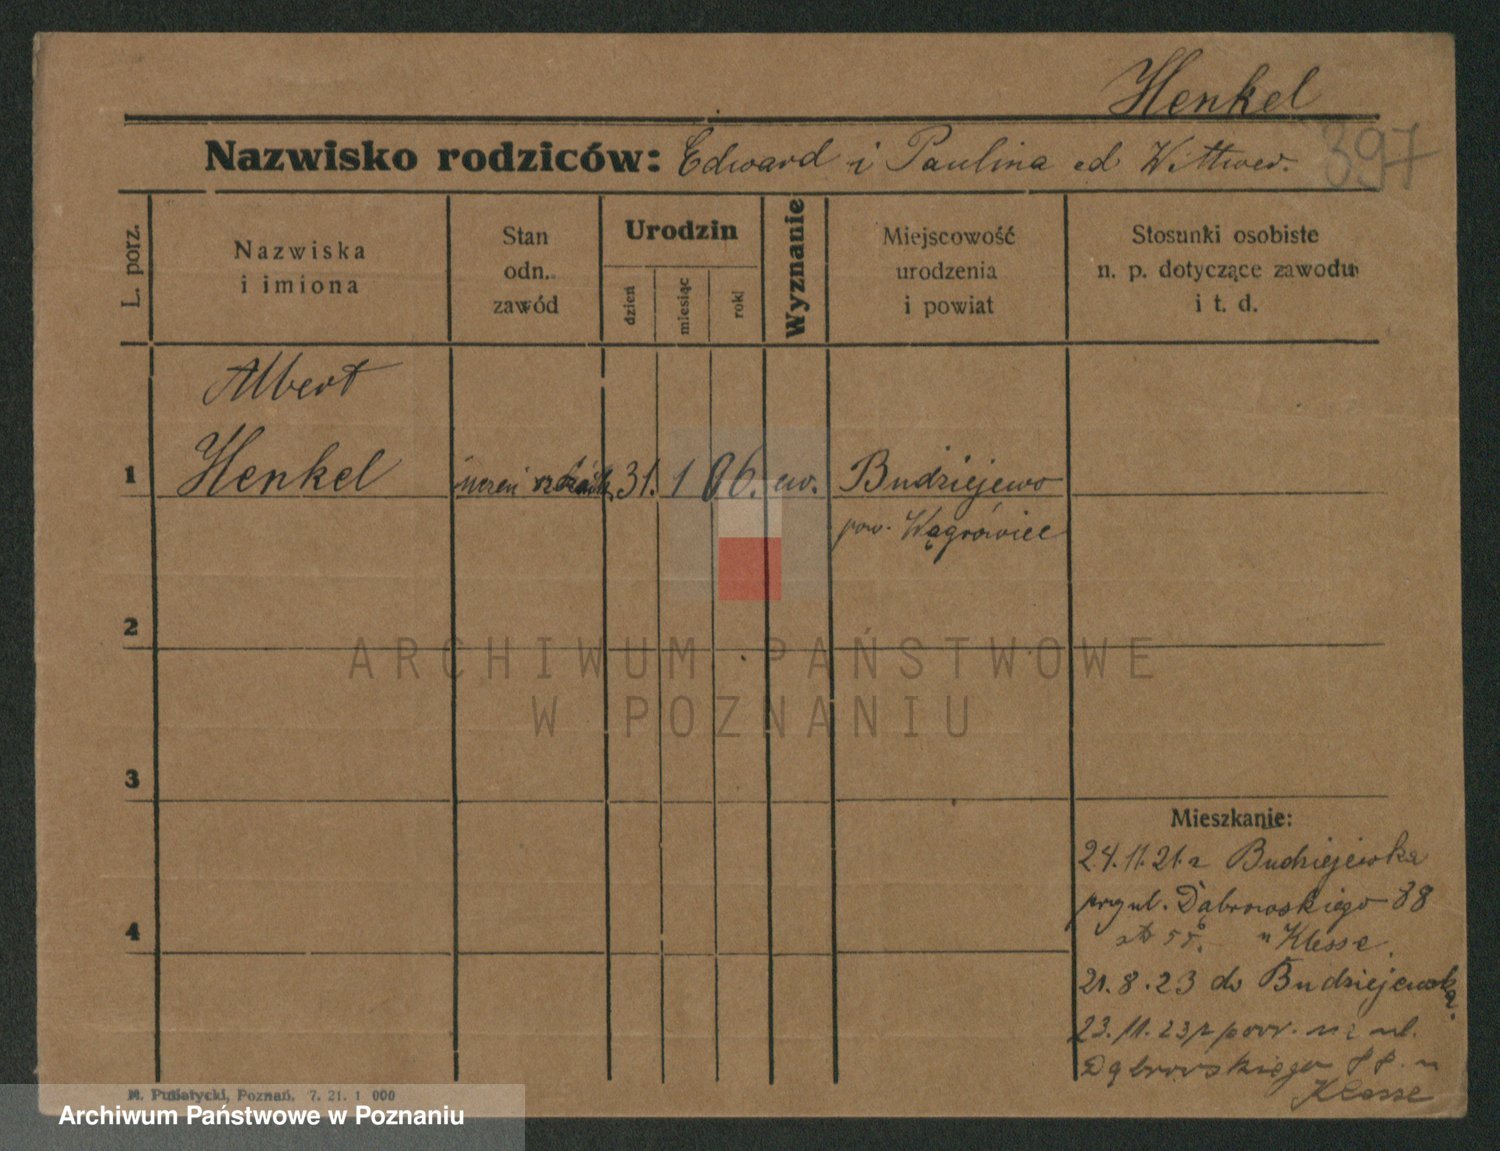 Henkel
397
Nazwisko rodziców: Edward i Paulina od Wittwer.
L. porz.
Nazwiska
i imiona
Stan
odn.
zawód
Urodzin
dzień
miesiąc
rok
Wyznanie
Miejscowość
urodzenia
i powiat
Stosunki osobiste
n. p. dotyczące zawodu
i t. d.
Albert
1 Henkel uczeń 31. 1 06. ew. Budziejewo
pow. Wągrówiec
2
ARCHIWUM PAŃSTWOWE
W POZNANIU
3
Mieszkanie:
24.11.21. z Budziejewka
przy ul. Dąbrowskiego 88
4
u Klesse.
21.8.23 do Budziejewka.
23.11.23 z pow. na ul.
Dąbrowskiego 88. u
Klesse
M. Putiatycki, Poznań. 7. 21. 1 000
Archiwum Państwowe w Poznaniu